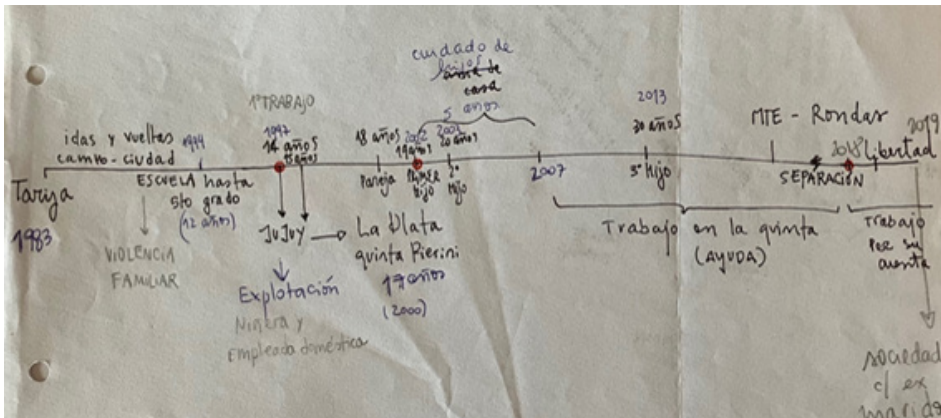 cuidado de
hijos
casa
5 años
1º TRABAJO
2013
30 años
MTE - Rondas
2019
idas y vueltas
campo-ciudad
1994
1997
14 años
15 años
18 años
2002
19 años
2003
20 años
2018
libertad
Tarija
1983
ESCUELA hasta
5to grado
(12 años)
Pareja
PRIMER
Hijo
2º
Hijo
2007
3º Hijo
SEPARACIÓN
VIOLENCIA
FAMILIAR
JUJUY
La Plata
quinta Pierini
17 años
(2000)
Explotación
Niñera y
Empleada doméstica
Trabajo en la quinta
(AYUDA)
Trabajo
por su
cuenta
sociedad
c/ ex
marido